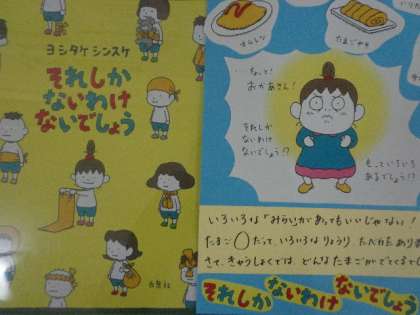 ヨシタケ シンスケ
それしか
ないわけ
ないでしょう
白泉社
たまごやき
…なっと!
おかあさん!
それしか
ないわけ
ないでしょう!?
あるでしょう!?
いろいろな「みらい」があってもいいじゃない!
たまごだって、いろいろなりょうり、たべかたがあります
さて、きゅうしょくでは、どんなたまごがでてくるでし
それしか ないわけ ないでしょう